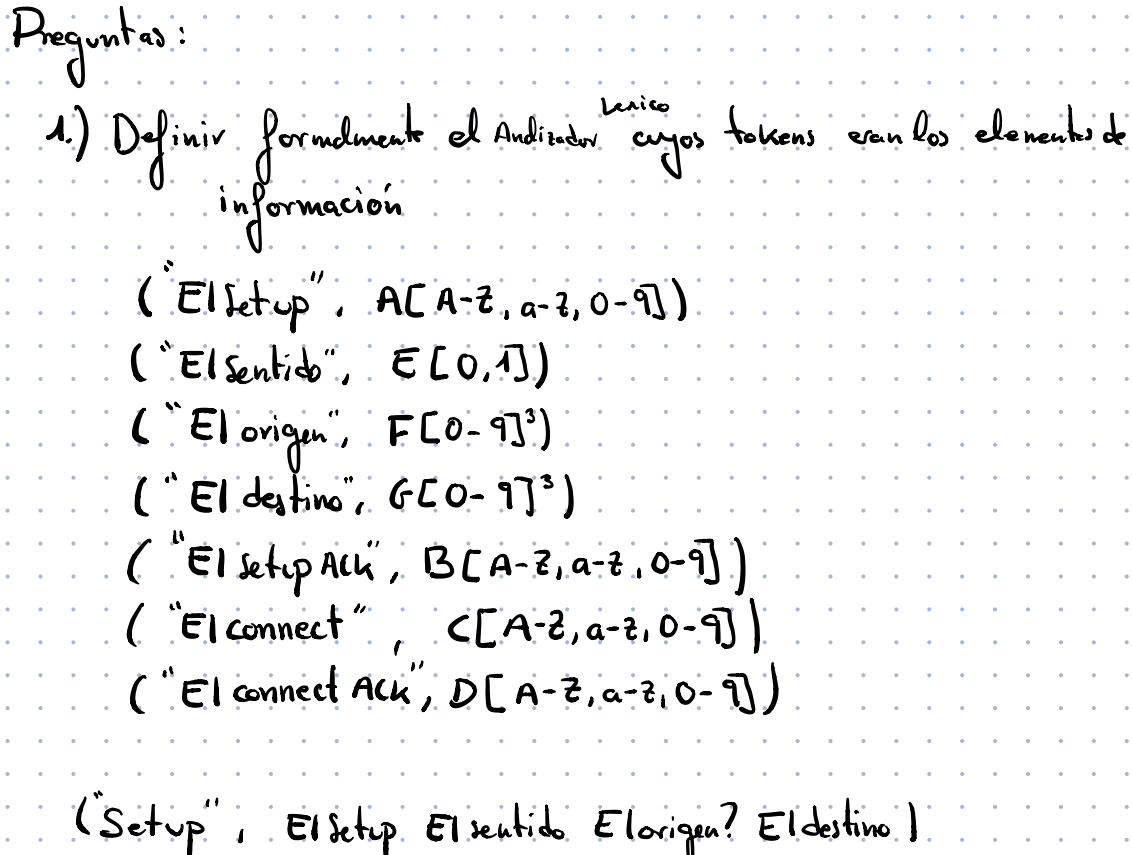 Preguntas:
1.) Definir formalmente el Analizador Lexico cuyos tokens eran los elementos de
información
("EIsetup", A[A-Z, a-z, 0-9])
("EIsentido", E[0,1])
("EIorigen", F[0-9]³)
("EIdestino", G[0-9]³)
("EIsetupACK", B[A-Z, a-z, 0-9])
("EIconnect", C[A-Z, a-z, 0-9])
("EIconnect ACK", D[A-Z, a-z, 0-9])
("Setup", EIsetup EIsentido EIorigen? EIdestino)